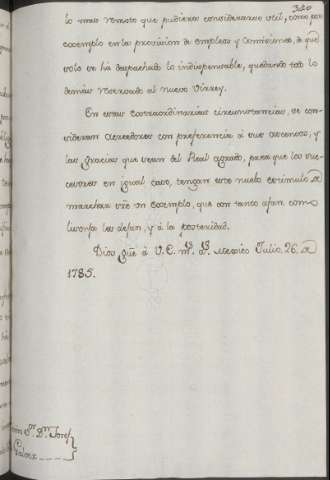 320
lo mas remoto que pudiera considerarse util, como por
exemplo en la provision de empleos y comisiones, de que
solo se ha despachado lo indispensable, quedando todo lo
demas reservado al nuevo Virrey.
En estas extraordinarias circunstancias, se con-
sideran acreedores con preferencia à sus ascensos, y
las gracias que sean del Real agrado, para que los suc-
cesores en igual caso, tengan este nuevo estimulo de
marchar
exemplo, que con tanto afan, como
les dejan, y à la posteridad.
Dios gũe à V.E. m.s a.s Mexico Julio 26. de
1785.
S.or D.n Josef
Galvez